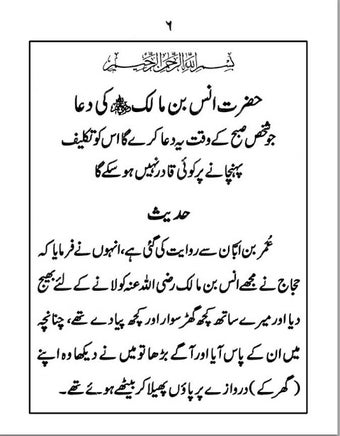 ۶
بسم اللہ الرحمن الرحیم
حضرت انس بن مالک رضی اللہ عنہ کی دعا
جو شخص صبح کے وقت یہ دعا کرے گا اس کو تکلیف
پہنچانے پر کوئی قادر نہیں ہو سکے گا
حدیث
عُمر بن ابّان سے روایت کی گئی ہے، انہوں نے فرمایا کہ
حجاج نے مجھے انس بن مالک رضی اللہ عنہ کو لانے کے لئے بھیج
دیا اور میرے ساتھ کچھ گھڑ سوار اور کچھ پیادے تھے، چنانچہ
میں ان کے پاس آیا اور آگے بڑھا تو میں نے دیکھا وہ اپنے
(گھر کے) دروازے پر پاؤں پھیلا کر بیٹھے ہوئے تھے۔